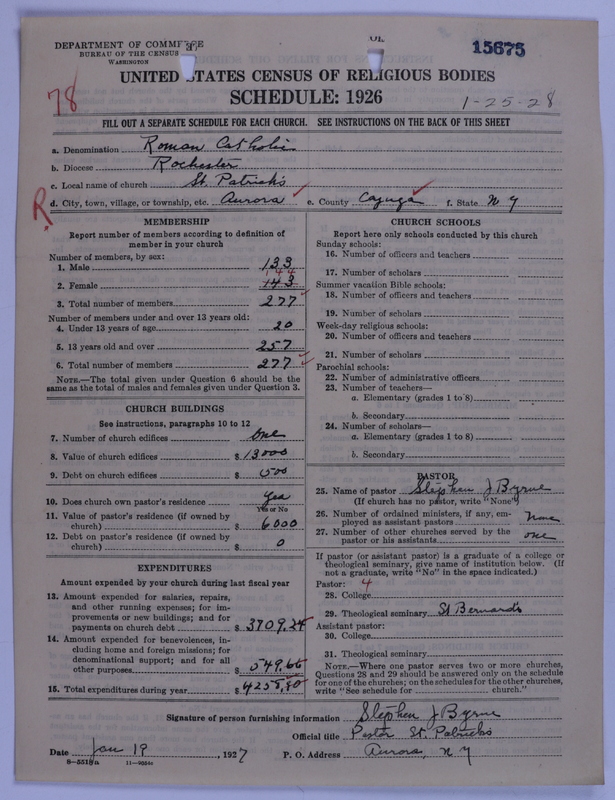 DEPARTMENT OF COMMERCE
BUREAU OF THE CENSUS
WASHINGTON
15675
UNITED STATES CENSUS OF RELIGIOUS BODIES
SCHEDULE: 1926
78
1-25-28
FILL OUT A SEPARATE SCHEDULE FOR EACH CHURCH. SEE INSTRUCTIONS ON THE BACK OF THIS SHEET
a. Denomination Roman Catholic
b. Diocese Rochester
c. Local name of church St. Patrick's
R
d. City, town, village, or township, etc. Aurora e. County Cayuga f. State N Y
MEMBERSHIP
Report number of members according to definition of
member in your church
Number of members, by sex:
1. Male 133
144
2. Female 143
3. Total number of members 277
Number of members under and over 13 years old:
4. Under 13 years of age 20
5. 13 years old and over 257
6. Total number of members 277
NOTE.—The total given under Question 6 should be the
same as the total of males and females given under Question 3.
CHURCH BUILDINGS
See instructions, paragraphs 10 to 12
7. Number of church edifices one
8. Value of church edifices $ 13000
9. Debt on church edifices $ 500
10. Does church own pastor's residence Yes
Yes or No
11. Value of pastor's residence (if owned by
church) $ 6000
12. Debt on pastor's residence (if owned by
church) $ 0
EXPENDITURES
Amount expended by your church during last fiscal year
13. Amount expended for salaries, repairs,
and other running expenses; for im-
provements or new buildings; and for
payments on church debt $ 3709.24
14. Amount expended for benevolences, in-
cluding home and foreign missions; for
denominational support; and for all
other purposes $ 549.66
15. Total expenditures during year $ 4258,90
CHURCH SCHOOLS
Report here only schools conducted by this church
Sunday schools:
16. Number of officers and teachers
17. Number of scholars
Summer vacation Bible schools:
18. Number of officers and teachers
19. Number of scholars
Week-day religious schools:
20. Number of officers and teachers
21. Number of scholars
Parochial schools:
22. Number of administrative officers
23. Number of teachers—
a. Elementary (grades 1 to 8)
b. Secondary
24. Number of scholars—
a. Elementary (grades 1 to 8)
b. Secondary
PASTOR
25. Name of pastor Stephen J Byrne
(If church has no pastor, write "None")
26. Number of ordained ministers, if any, em-
ployed as assistant pastors None
27. Number of other churches served by the
pastor or his assistants one
If pastor (or assistant pastor) is a graduate of a college or
theological seminary, give name of institution below. (If
not a graduate, write "No" in the space indicated.)
Pastor: 4
28. College
29. Theological seminary St Bernard's
Assistant pastor:
30. College
31. Theological seminary
NOTE.—Where one pastor serves two or more churches,
Questions 28 and 29 should be answered only on the schedule
for one of the churches; on the schedules for the other churches,
write "See schedule for church."
Signature of person furnishing information Stephen J Byrne
Official title Pastor St. Patricks
Date Jan 19, 1927 P. O. Address Aurora, N Y